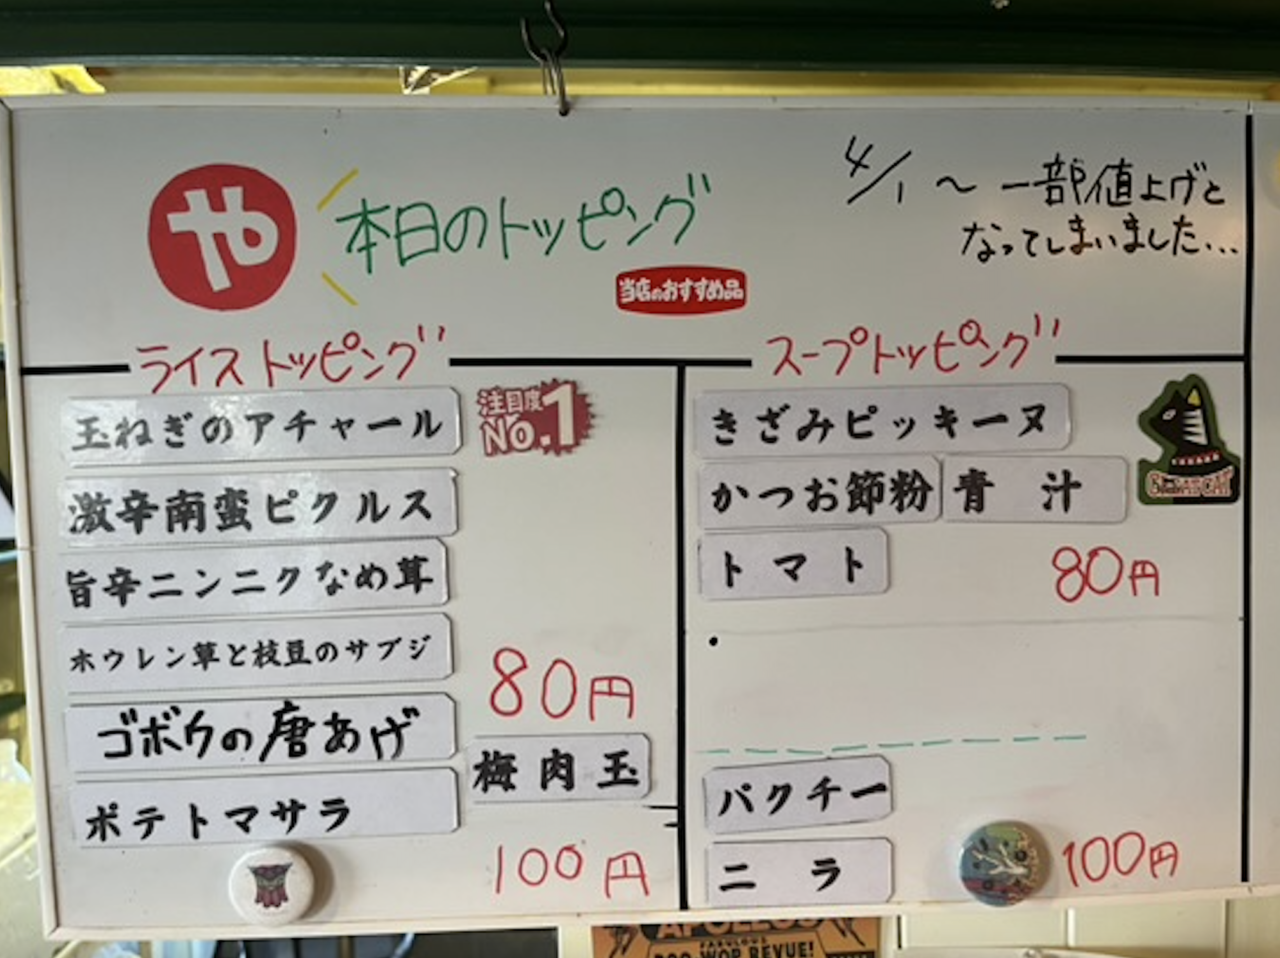 や
本日のトッピング
当店のおすすめ品
4/1~一部値上げと
なってしまいました...
ライストッピング
玉ねぎのアチャール
注目度
No.1
激辛南蛮ピクルス
旨辛ニンニクなめ茸
ホウレン草と枝豆のサブジ
80円
ゴボウの唐あげ
梅肉玉
ポテトマサラ
100円
スープトッピング
きざみピッキーヌ
かつお節粉
青汁
トマト
80円
パクチー
ニラ
100円
APOLLOS
FABULOUS
DOO WOP REVUE!